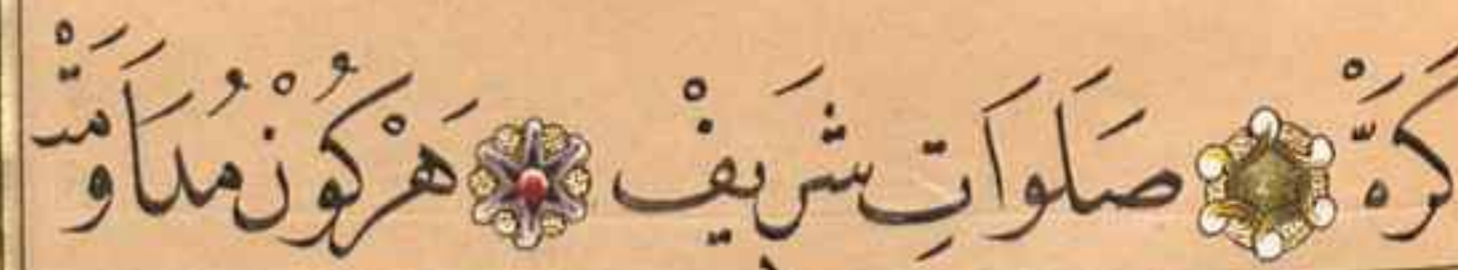 كَرَّه صَلَوَاتِ شَرَيفْ هَرْ كُونْ مُدَاوَمَتْ